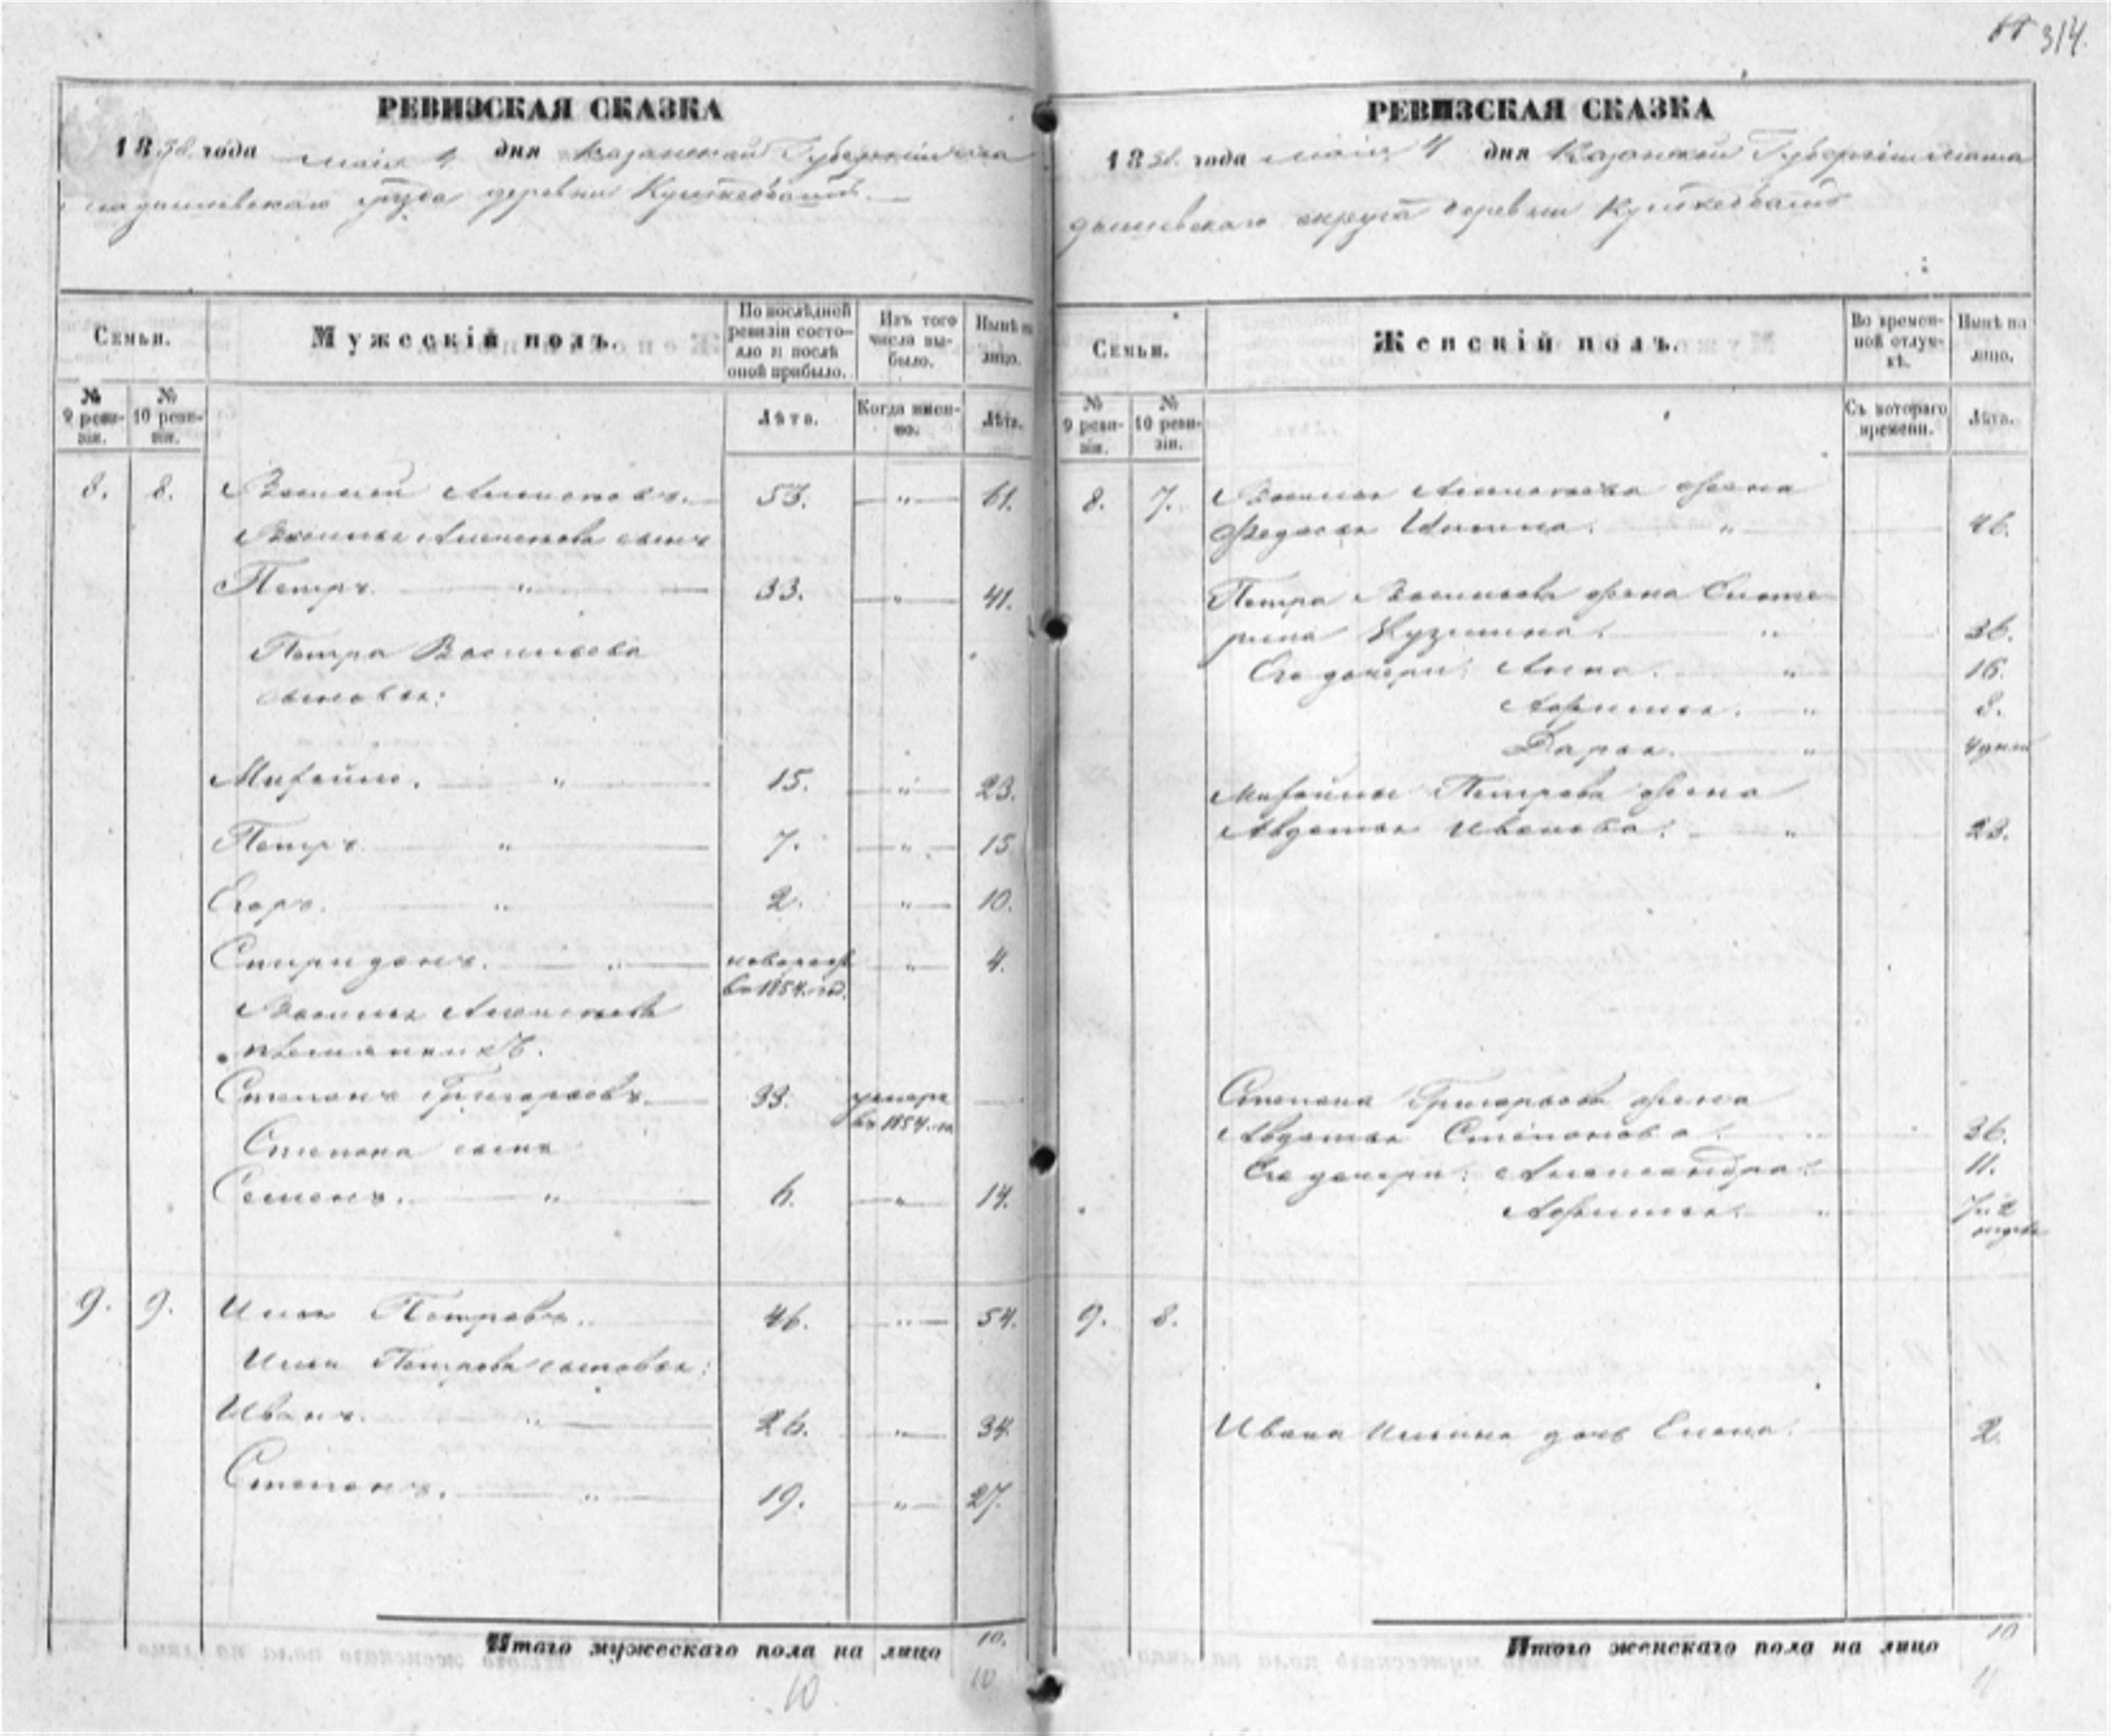 314.
РЕВИЗСКАЯ СКАЗКА
1858 года маія 4 дня Казанской Губерніи
уезда деревни
Семьи.
Мужескій полъ.
По послѣдней ревизіи состояло и послѣ оной прибыло.
Изъ того числа выбыло.
Нынѣ на лицо.
№ 9 ревизіи.
№ 10 ревизіи.
Лѣта.
Когда именно.
Лѣта.
8. 8. Василій 53. „ 61.
Василья сынъ
Петръ. „ 33. „ 41.
Петра Васильева
сыновья:
Михайло. „ 15. „ 23.
Петръ „ 7. „ 15
Егоръ. „ 2. „ 10.
Спиридонъ. „ новорож „ 4.
въ 1854. год.
Василья
племянникъ.
Степанъ Григорьевъ. 33. умеръ
въ 1854. го
Степана сынъ
Семенъ. „ 6. „ 14.
9. 9. Илья Петровъ. 46. „ 54.
Ильи Петрова сыновья:
Иванъ. „ 26. „ 34.
Степанъ. „ 19. „ 27.
Итого мужескаго пола на лицо 10.
10 10
РЕВИЗСКАЯ СКАЗКА
1858. года маія 4 дня Казанской Губерніи Мама
дышевскаго округа деревни
Семьи.
Женскій полъ.
Во временной отлучкѣ.
Нынѣ на лицо.
№ 9 ревизіи.
№ 10 ревизіи.
Съ котораго времени.
Лѣта.
8. 7. Василья жена
Федосья „ 46.
Петра Васильева жена Екате
рина Кузмина. „ 36.
Его дочери: Анна. „ 16.
Афимья. „ 8.
Дарья. „ 4 дней
Михайлы Петрова жена
Авдотья Иванова. „ 23.
Степана Григорьева жена
Авдотья Степанова. „ 36.
Его дочери: Александра. 11.
Афимья. „
9. 8.
Ивана Ильина дочь Елена. 2.
Итого женскаго пола на лицо 10